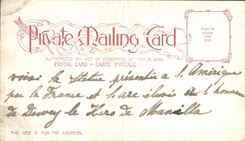 Private Mailing Card
AUTHORIZED BY ACT OF CONGRESS OF MAY 19, 1898.
POSTAL CARD - CARTE POSTALE
voici la statue présentée a l'Amérique
par la France et l'arc élevé en l'honneur
de Dewey le Héro de Manilla
THIS SIDE IS FOR THE ADDRESS.